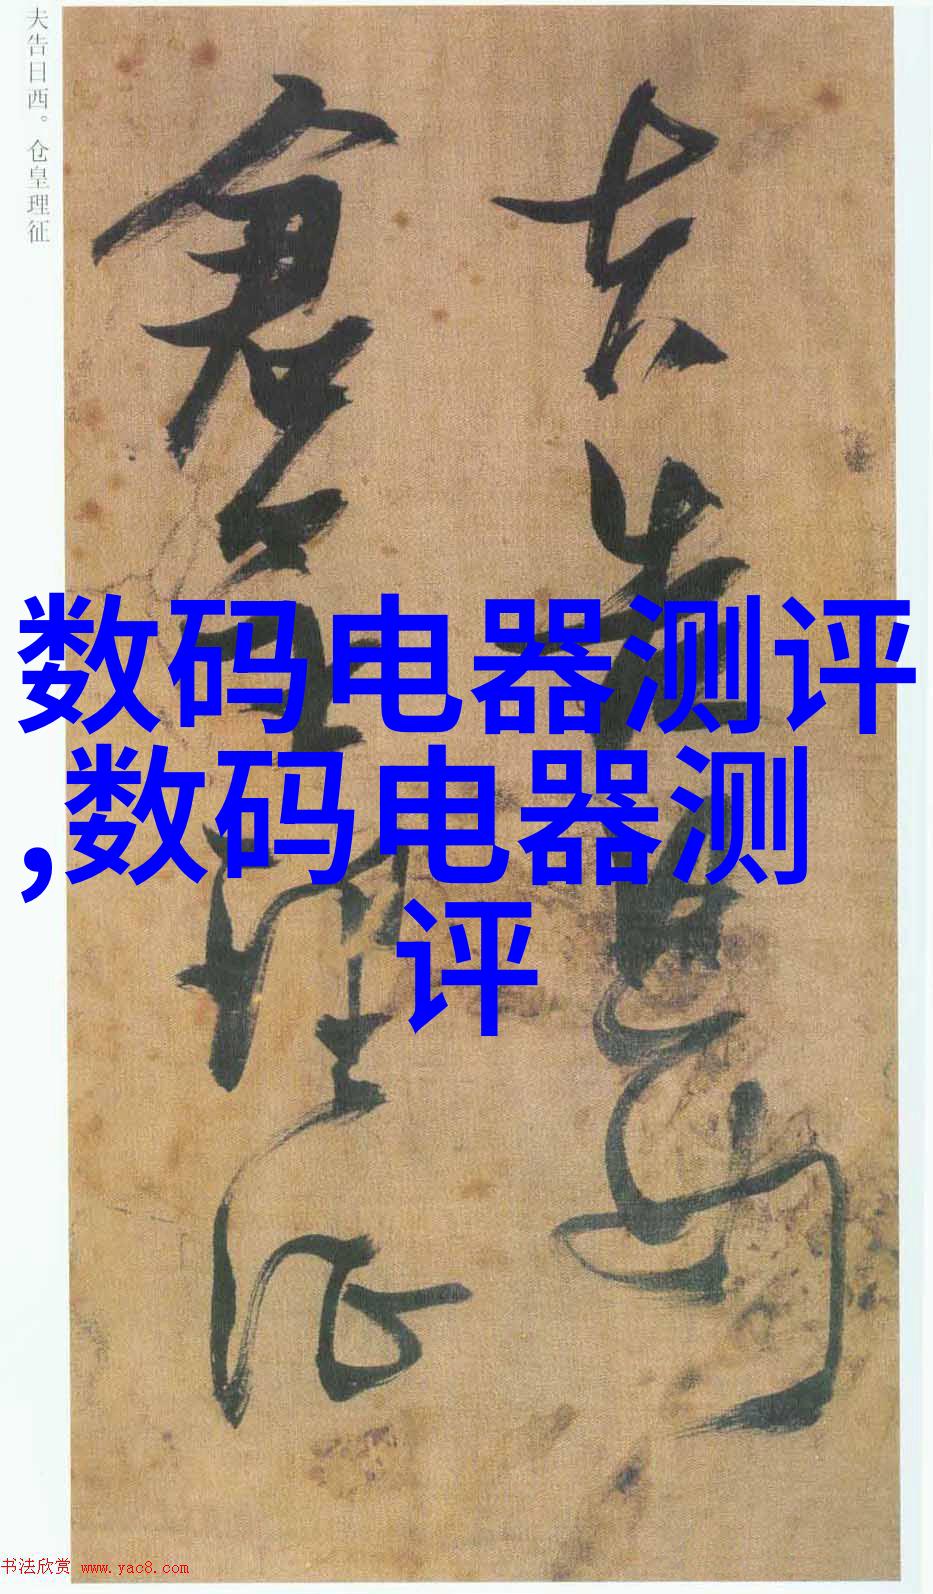 夫告日西。仓皇理征
夫告日西
仓皇理征
数码电器测评
,数码电器测
评
书法欣赏 www.yac8.com